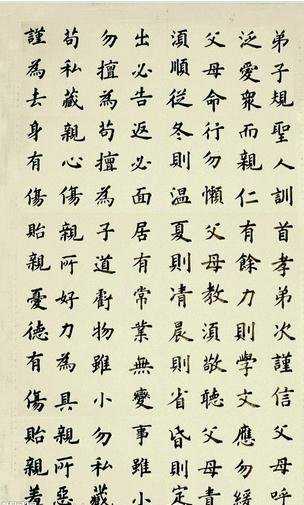 弟子規聖人訓首孝弟次謹信父母呼
泛愛衆而親仁有餘力則學文應勿緩
父母命行勿懶父母教湏敬聽父母責
湏順從冬則温夏則凊晨則省昏則定
出必告返必面居有常業無變事雖小
勿擅為苟擅為子道虧物雖小勿私藏
苟私藏親心傷親所好力為具親所惡
謹為去身有傷貽親憂德有傷貽親羞